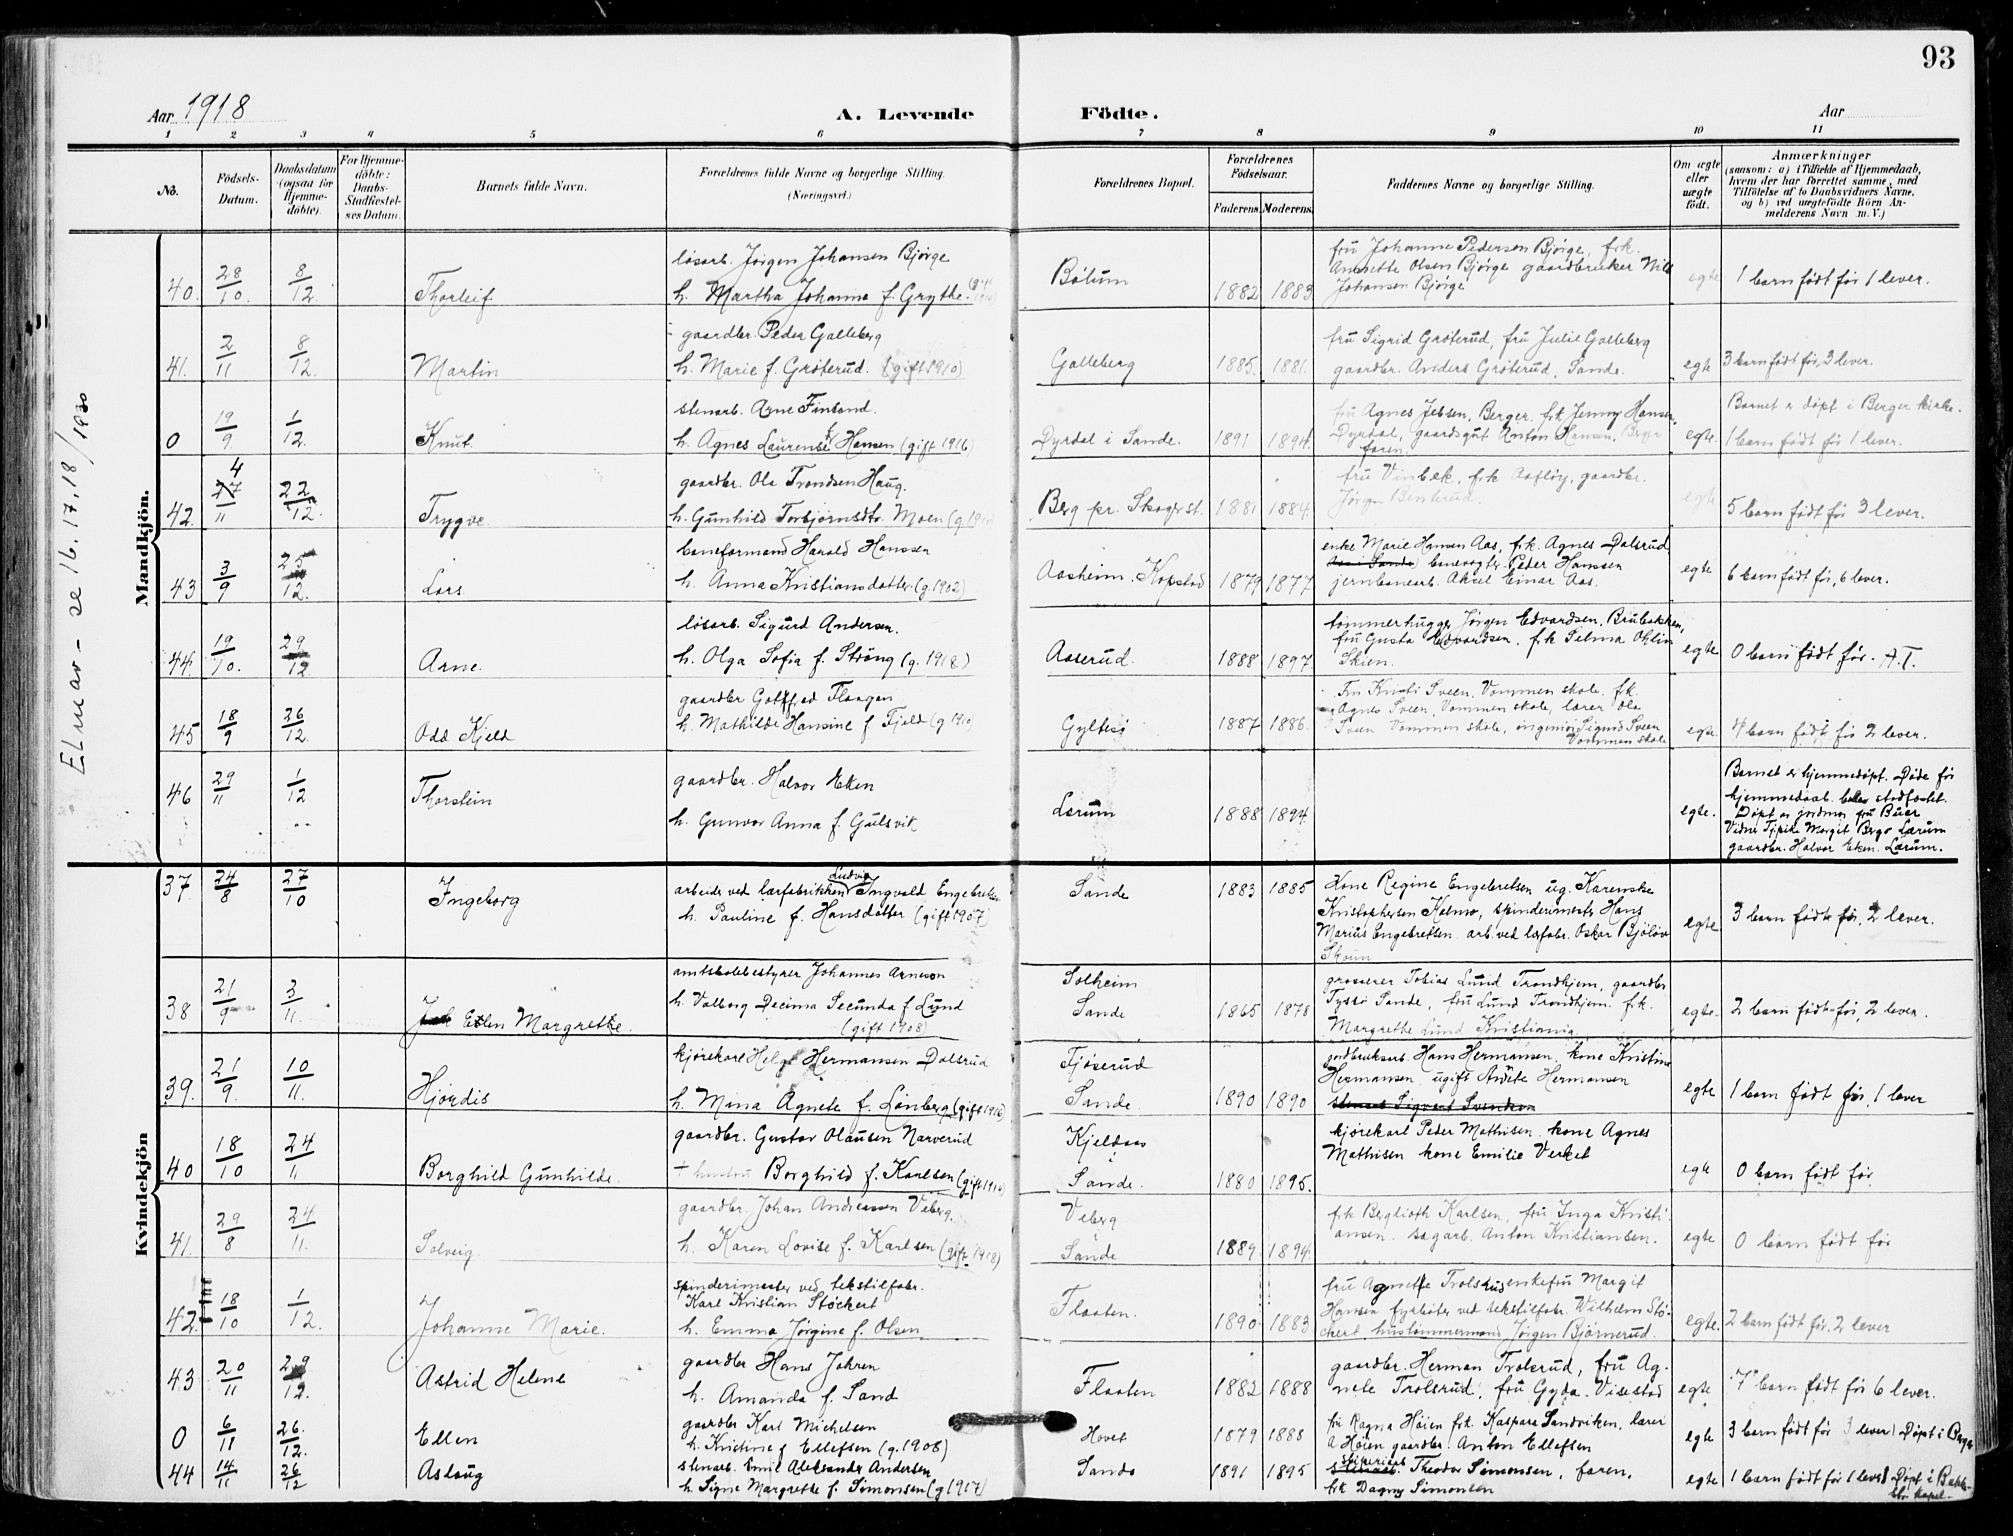 93
Aar 1918
A. Levende
Födte.
Aar
1 2 3 4 5 6 7 8 9 10 11
No.
Födsels-
Datum.
Daabsdatum
(ogsaa for
Hjemme-
döbte).
For Hjemme-
döbte:
Daabs-
Stadfæstel-
ses Datum.
Barnets fulde Navn.
Forældrenes fulde Navne og borgerlige Stilling.
(Næringsvei.)
Forældrenes Bopæl.
Forældrenes
Födselsaar.
Faderens. Moderens.
Faddernes Navne og borgerlige Stilling.
Om ægte
eller
uægte
födt.
Anmærkninger
(saasom: a) i Tilfælde af Hjemmedaab,
hvem der har forrettet samme, med
Tilföielse af to Daabsvidners Navne,
og b) ved uægtefödte Börn An-
melderens Navn m. V.)
Mandkjön.
Elnar - se 16.17.18/1920
40. 28/10. 8/12 Thorleif
løsarb. Jørgen Johansen Bjørge
h. Martha Johanna f. Grythe.
Bølum 1882 1883
fru Johanne Pedersen Bjørge, frk.
Annette Olsen Bjørge gaardbruker Nils
Johansen Bjørge
egte 1 barn født før 1 lever.
41. 2/11 8/12. Martin
gaardbr. Peder Galleberg
h. Marie f. Grøterud. (gift 1910)
Galleberg 1885. 1881.
fru Sigrid Grøterud, fru Julie Galleberg
gaardbr. Anders Grøterud, Sande.
egte 3 barn født før, 3 lever.
0 19/9 1/12. Knut.
stenarb. Arne Finland.
h. Agnes Laurense f. Hansen (gift 1916)
Dyrdal i Sande. 1891 1894.
fru Agnes Jebsen, Berger, frk Jenny Hansen,
Dyrdal, gaardsgut Anton Hansen, Berger
faren.
egte. Barnet er døpt i Berger kirke.
1 barn født før 1 lever.
42. 4/11 22/12. Trygve
gaardbr. Ole Trondsen Haug.
h. Gunhild Torbjørnsdtr. Moen
Berg pr. Skoger st. 1881 1884.
fru Vinbek, frk Aasløy, gaardbr.
Jørgen Benterud.
egte 5 barn født før 3 lever.
43 3/9 25/12. Lars
baneformand Harald Hanssen
h. Anna Kristiansdatter (g. 1902)
Aasheim. Kopstad 1879 1877
enke Marie Hansen Aas, frk. Agnes Dalsrud
banevogter Peder Hanssen
jernbanearb. Aksel Einar Aas.
egte 6 barn født før, 6 lever.
44. 19/10. 29/12. Arne.
løsarb. Sigurd Andersen.
h. Olga Sofia f. Strøng (g. 1918)
Aaserud. 1888 1897
tømmerhugger Jørgen Edvardsen, Brubakken,
fru Gusta Edvardsen, frk Selma Ohlin
Skien.
egte 0 barn født før. A.T.
45 18/9 26/12. Odd Kjeld
gaardbr Gottfred Flaagen
h. Mathilde Hansine f Fjeld (g 1910)
Gyltesø 1887 1886.
Fru Kristi Sveen, Vommen skole. frk.
Agnes Sveen, Vommen skole, lærer Ole
Sveen Vommen skole, ingeniør Sigurd Sveen
Vommen skole
egte 4 barn født før 2 lever.
46 29/11 1/12 Thorstein
gaardbr. Halvor Eken
h. Gunvor Anna f. Gulsvik
Lørum 1888 1894.
egte. Barnet er hjemmedøpt. Døde før
hjemmedaab. stadfæstet.
Døpt av jordmor fru Buer
Vidne Margit Berge Lærum
gaardbr. Halvor Eken. Lærum.
Kvindekjön
37. 24/8 27/10 Ingeborg
arbeider ved lærfabrikken Ludvig Ingvald Engebretsen
h. Pauline f. Hansdatter (gift 1907)
Sande 1883 1885
Kone Regine Engebretsen ug. Karenske
Kristophersen Holmo, spinderimester Hans
Marius Engebretsen arb. ved lærfabr. Oskar Bjølør
Skoum
egte 3 barn født før, 2 lever.
38 21/9 3/11. Ellen Margrethe.
amtskolebestyrer Johannes Arneson
h. Valborg Decima Secunda f Lund
(gift 1908)
Solheim
Sande 1865 1878
grosserer Tobias Lund Trondhjem, gaardbr
Tyssø Sande, fru Lund Trondhjem. frk.
Margrethe Lund Kristiania.
egte. 2 barn født før, 2 lever.
39. 21/9. 10/11. Hjørdis
kjørekarl Helge Hermansen Dalsrud
h. Mina Agnete f. Lønberg (gift 1916)
Fjøserud
Sande. 1890 1890
jordbruksarb. Hans Hermansen, kone Kristine
Hermansen, ugift Anette Hermansen
stenarb Sigvart Svendsen
egte 1 barn født før, 1 lever
40 18/10 24/11 Borghild Gunhilde.
gaardbr. Gustav Olausen Narverud
+ hustru Borghild f. Karlsen
Kjeldaas
i
Sande. 1880 1895.
kjørekarl Peder Mathisen, kone Agnes
Mathisen kone Emilie Verket
egte 0 barn født før
41. 29/8 24/11. Solveig
gaardbr. Johan Andreassen Viberg.
h. Karen Lovise f. Karlsen (gift 1918)
Viberg
Sande 1889. 1894.
frk Bergljoth Karlsen, fru Inga Kristi-
ansen. sagarb. Anton Kristiansen.
egte 0 barn født før
42. 18/10 1/12. Johanne Marie.
spinderimester ved tekstilfabr.
Karl Kristian Støckert
h. Emma Jørgine f. Olsen
Flaaten. 1890 1883
fru Agnette Trolsrud enkefru Margit
Hansen fyrbøter ved tekstilfabr. Wilhelm Stø-
ckert, hustømmermand Jørgen Bjørnerud.
egte. 2 barn født før. 2 lever
43 20/11 29/12. Astrid Helene
gaardbr Hans Johren
h. Amanda f. Sand
Flaaten 1882 1888
gaardbr. Herman Trolsrud, fru Ag-
nete Trolsrud, fru Gyda Visestad
egte 7 barn født før 6 lever.
0 6/11 26./12. Ellen
gaardbr Karl Michelsen
h. Kristine f Ellefsen (g. 1908)
Hovet 1879 1888
fru Ragna Høien frk. Kaspara Sandviken, lærer
A Høien gaardbr. Anton Ellefsen
egte 3 barn født før 3 lever) Døpt i Berger
44 14/11 26/12 Aslaug
stenarb. Emil Aleksander Andersen
h. Signe Margrethe f. Simonsen (g 1917)
Sande 1891 1895
Theodor Simonsen, faren,
frk Dagny Simonsen
egte 1 barn født før 1 lever) Døpt i Bakke-
kapel.